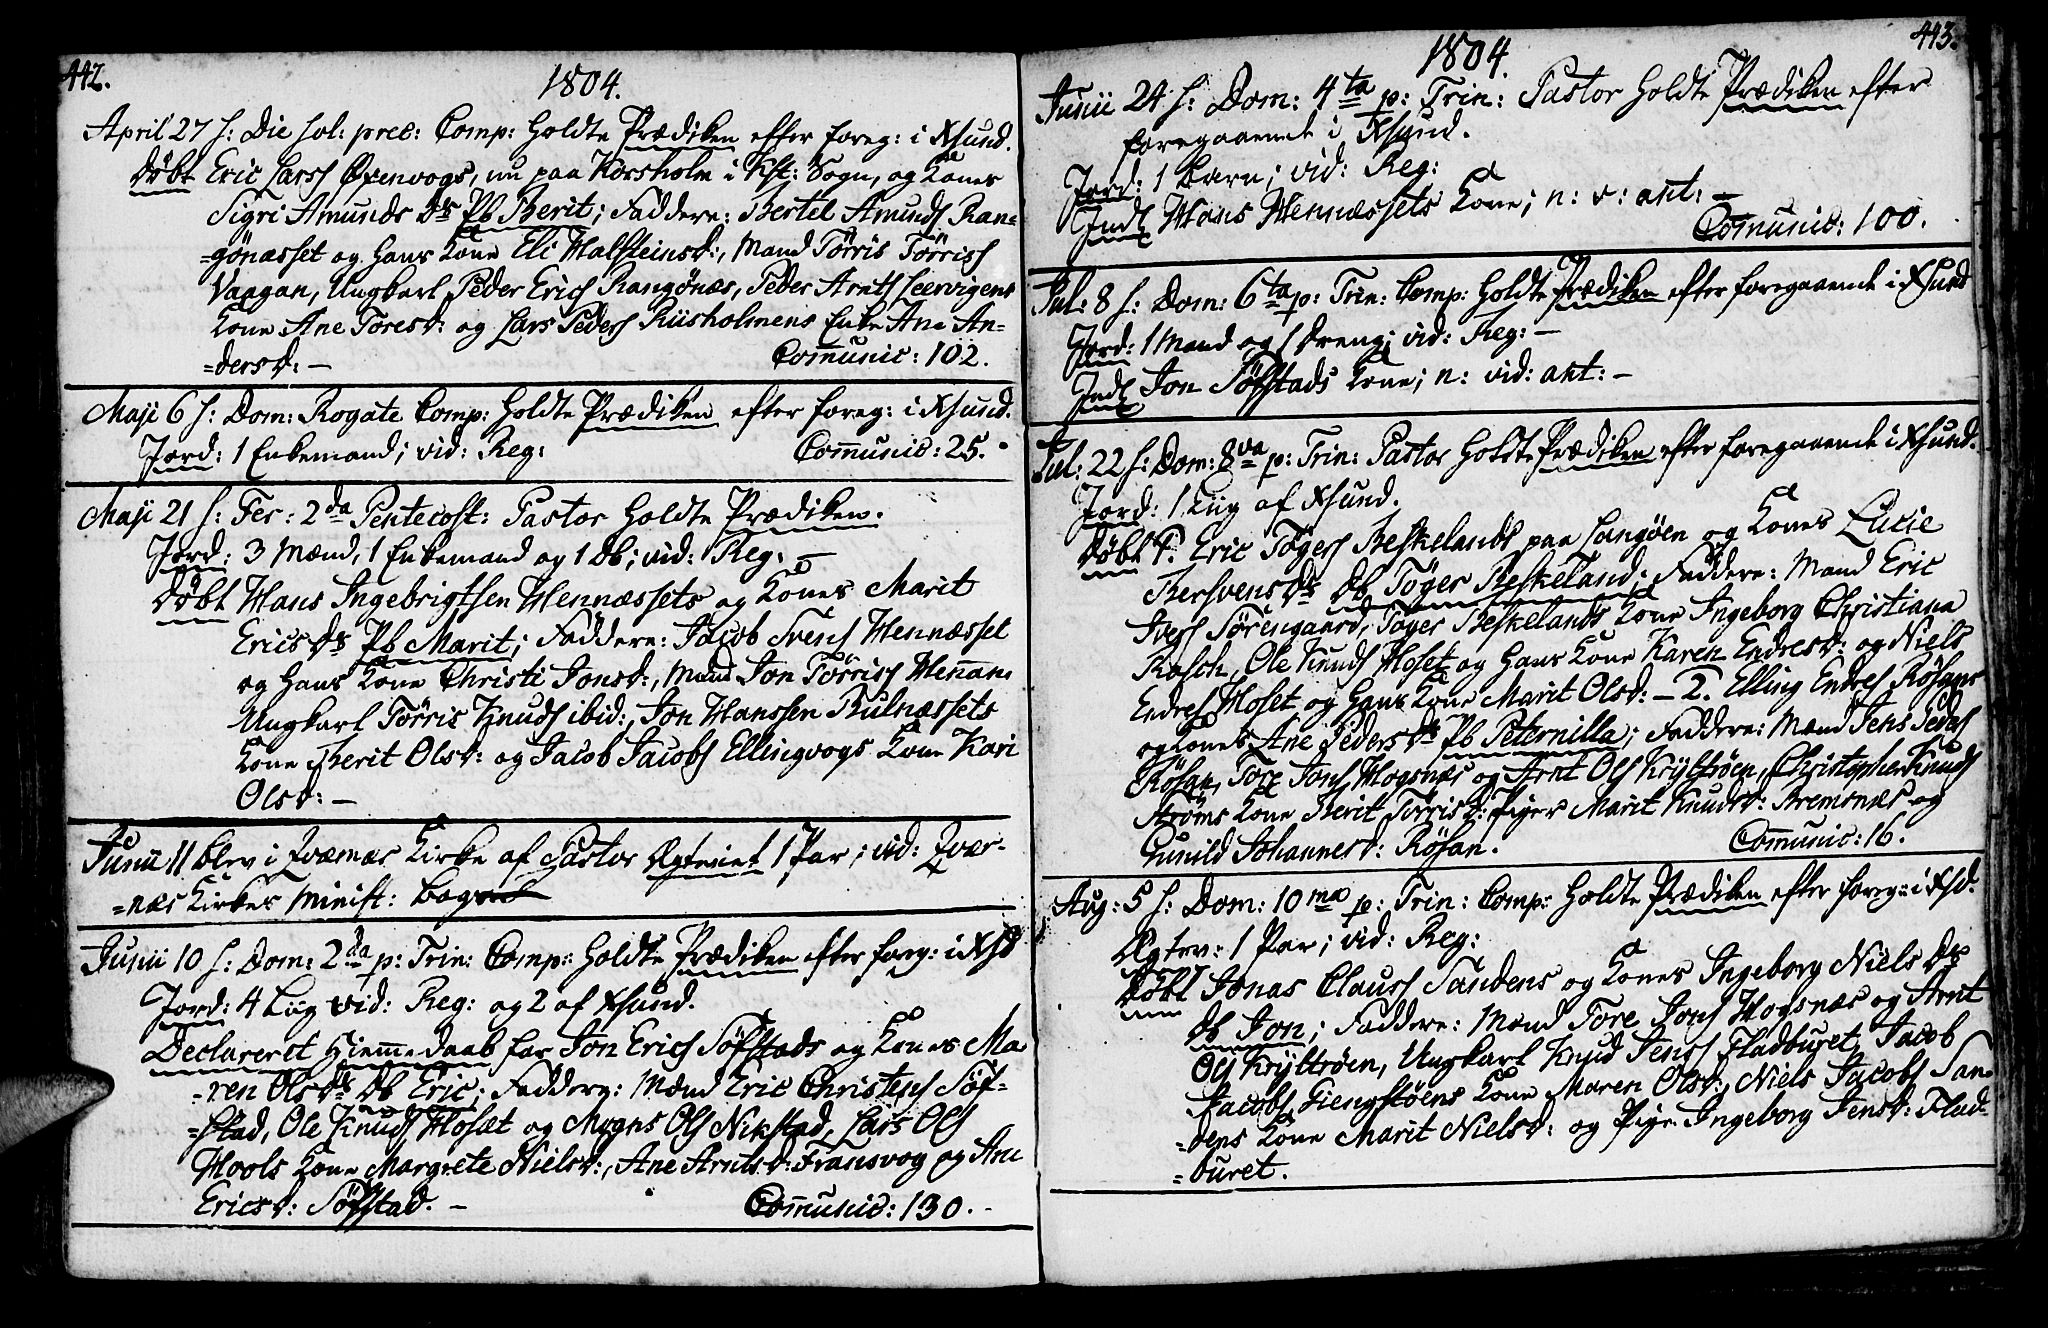 442.
1804.
April 27 h: Die sol: prec: Comp: holdte Prædiken efter foreg: i Xsund.
Døbt Eric Larss Øxenvogs, nu paa Korsholm i Kst: Sogn, og Kones
Sigri Amunds Dr Pb Berit; Faddere: Bertel Amunds Ran-
=gønæsset og hans Kone Eli Halsteinsd:, Mand Törris Törriss
Vaagan, Ungkarl Peder Erics Rangønæs, Peder Arnts Leervigens
Kone Ane Toresd: og Lars Peders Riisholmens Enke Ane An-
=dersd: —
Communic: 102.
Maji 6 h: Dom: Rogate Comp: holdte Prædiken efter foreg: i Xsund.
Jord: 1 Enkemand; vid: Reg:
Communic: 25.
Maji 21 h: Fer: 2da Pentecost: Pastor holdte Prædiken.
Jord: 3 Mænd, 1 Enkemand og 1 Db; vid: Reg: —
Døbt Hans Ingebrigtsen Hennæssets og Kones Marit
Erics Dr Pb Marit; Faddere: Jacob Svens Hennæsset
og hans Kone Christi Jonsd:, Mand Jon Törriss Hennam
Ungkarl Törris Knuds ibid:, Jon Hanssen Bulnæssets
Kone Berit Olsd: og Jacob Jacobs Ellingvogs Kone Kari
Olsd: —
Junii 11 blev i Qværnæs Kirke af Pastor Ægteviet 1 Par; vid: Qvær-
=næs Kirkes Minist: Bog
Junii 10 h: Dom: 2da p: Trin: Comp: holdte Prædiken efter foreg: i Xsd
Jord: 4 Liig vid: Reg: og 2 af Xsund.
Declareret Hiemmedaab for Jon Erics Söfstads og Kones Ma
=ren Ols Dr Db Eric; Faddere: Mænd Eric Christens Söf-
=stad, Ole Knuds Hosæt og Mogns Ols Nikstad, Lars Ols
Hools Kone Margrete Nielsd:, Ane Arntsd: Fransvog og Ane
Ericsd: Söfstad. —
Communic: 130.
443.
1804.
Junii 24 h: Dom: 4ta p: Trin: Pastor holdte Prædiken efter
foregaaende i Xsund.
Jord: 1 Barn; vid: Reg:
Indl Hans Hennæssets Kone; n: v: ant: —
Comunic: 100.
Jul: 8 h: Dom: 6ta p: Trin: Comp: holdte Prædiken efter foregaaende i Xsund
Jord: 1 Mand og 1 Dreng; vid: Reg: —
Indl Jon Söfstads Kone; n: vid: ant: —
Jul: 22 h: Dom: 8va p: Trin: Pastor holdte Prædiken efter foregaaende i Xsund.
Jord: 1 Liig af Xsund.
Døbt 1. Eric Tøgers Beskelands paa Langøen og Kones Lucie
Bersvens Dr Db Tøger Beskeland; Faddere: Mand Eric
Ivers Sörengaard, Tøger Beskelands Kone Ingeborg Christiana
Rasch, Ole Knuds Hoset og hans Kone Karen Endresd: og Niels
Endres Hoset og hans Kone Marit Olsd: — 2. Elling Endres Röfans
og Kones Ane Peders Dr Pb Peternilla; Faddere: Mænd Jens Peders
Röfan, Tore Jons Hogsnæs og Arnt Ols Kryttröen, Christopher Knuds
Ströms Kone Berit Törrisd: Piger Marit Knudsd: Bremsnæs og
Gunild Johannesd: Röfan.
Communic: 16.
Aug: 5 h: Dom: 10ma p: Trin: Comp: holdte Prædiken efter foreg: i Xsd.
Ægtev: 1 Par; vid: Reg:
Døbt Jonas Clauss Sandens og Kones Ingeborg Niels Dr
Db Jon; Faddere: Mænd Tore Jons Hogsnæs og Arnt
Ols Kryttröen, Ungkarl Knud Jenss Fladburet, Jacob
Jacobs Giengstöens Kone Maren Olsd:, Niels Jacobs San-
=dens Kone Marit Nielsd: og Pige Ingeborg Jensd: Flad-
=buret.